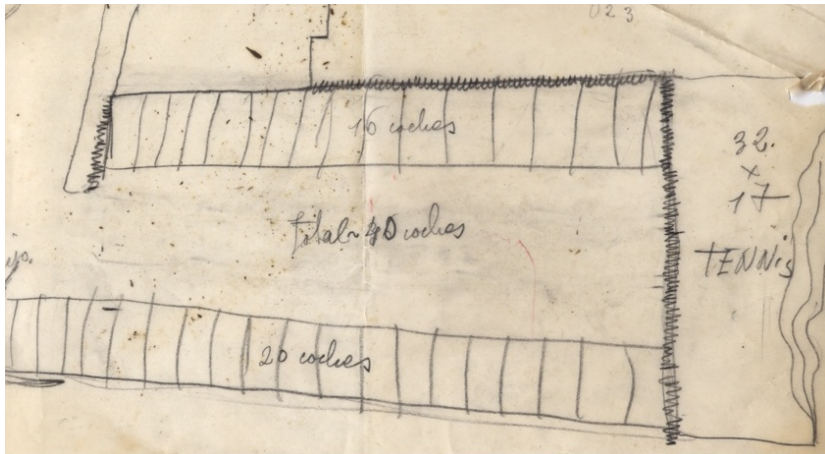 023
16 coches
32.
x
17
Total 40 coches
TENNis
20 coches